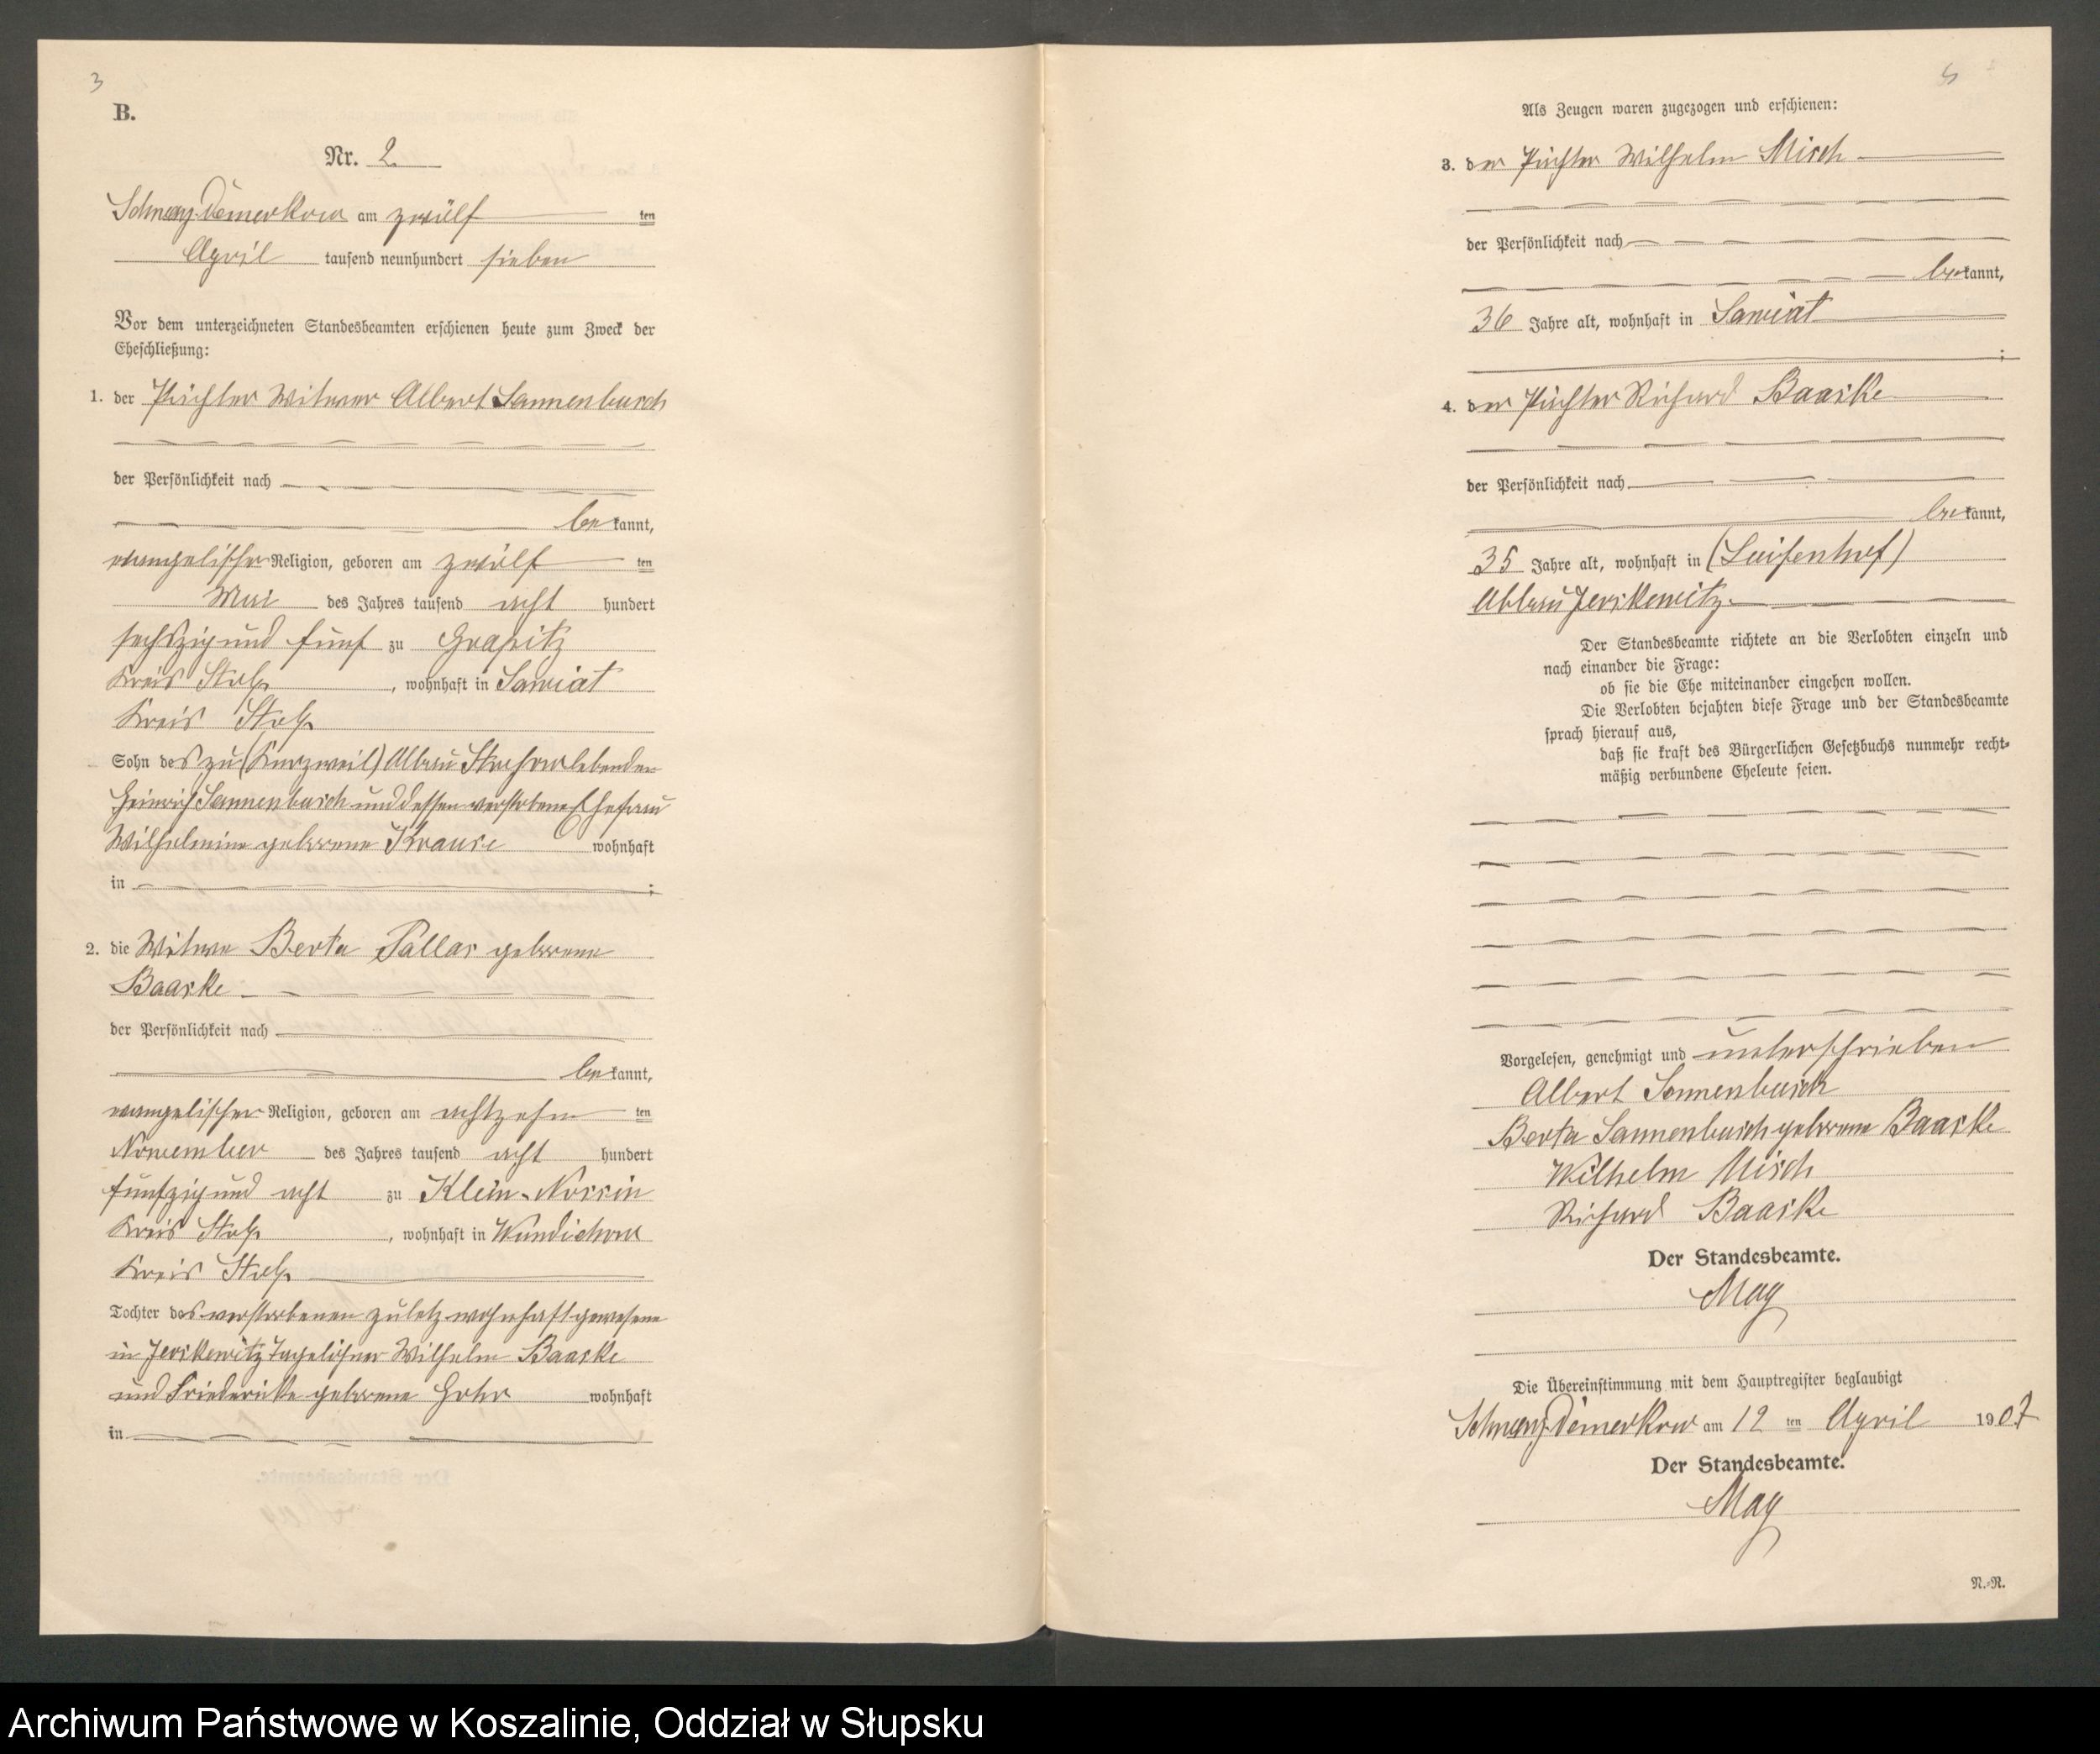 3
B.
Nr. 2
Schwarz-Damerkow am zwölf ten
April tausend neunhundert sieben
Vor dem unterzeichneten Standesbeamten erschienen heute zum Zweck der
Eheschließung:
1. der Pächter Witwer Albert Sannenbusch
der Persönlichkeit nach
be kannt,
evangelischer Religion, geboren am zwölf ten
Mai des Jahres tausend acht hundert
sechszig und fünf zu Grapitz
Kreis Stolp, wohnhaft in Sawiat
Kreis Stolp
Sohn des zu (Kurzweil) Abbau lebenden
Heinrich Sannenbusch und dessen verstorbene Ehefrau
Wilhelmine geborene Krause wohnhaft
in ;
2. die Witwe Berta Pallas geborene
Baaske
der Persönlichkeit nach
be kannt,
evangelischer Religion, geboren am achtzehn ten
November des Jahres tausend acht hundert
fünfzig und acht zu Klein-Nossin
Kreis Stolp, wohnhaft in Wundichow
Kreis Stolp
Tochter des verstorbenen zuletz wohnhaft gewesene
in Jerskewitz Tagelöhner Wilhelm Baaske
und Friedericke geborene Gohr wohnhaft
in
5
Als Zeugen waren zugezogen und erschienen:
3. der Pächter Wilhelm Misch
der Persönlichkeit nach
be kannt,
36 Jahre alt, wohnhaft in Sawiat
;
4. der Pächter Richard Baaske
der Persönlichkeit nach
be kannt,
35 Jahre alt, wohnhaft in (Luisenhof)
Abbau Jerskewitz
Der Standesbeamte richtete an die Verlobten einzeln und
nach einander die Frage:
ob sie die Ehe miteinander eingehen wollen.
Die Verlobten bejahten diese Frage und der Standesbeamte
sprach hierauf aus,
daß sie kraft des Bürgerlichen Gesetzbuchs nunmehr recht-
mäßig verbundene Eheleute seien.
Vorgelesen, genehmigt und unterschrieben
Albert Sonnenbusch
Berta Sannenbusch geborene Baaske
Wilhelm Misch
Richard Baaske
Der Standesbeamte.
May
Die Übereinstimmung mit dem Hauptregister beglaubigt
Schwarz-Damerkow am 12 ten April 1907
Der Standesbeamte.
May
N.-R.
Archiwum Państwowe w Koszalinie, Oddział w Słupsku